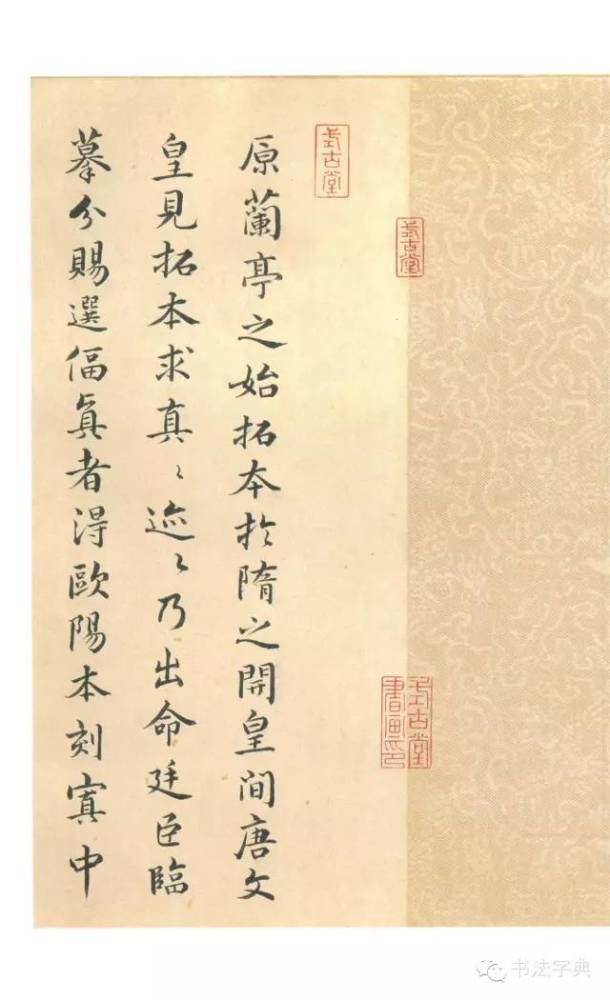 原蘭亭之始拓本於隋之開皇間唐文
皇見拓本求真〻迹〻乃出命廷臣臨
摹分賜選偪真者得歐陽本刻寘中
式古堂
式古堂
式古堂
書畫印
书法字典